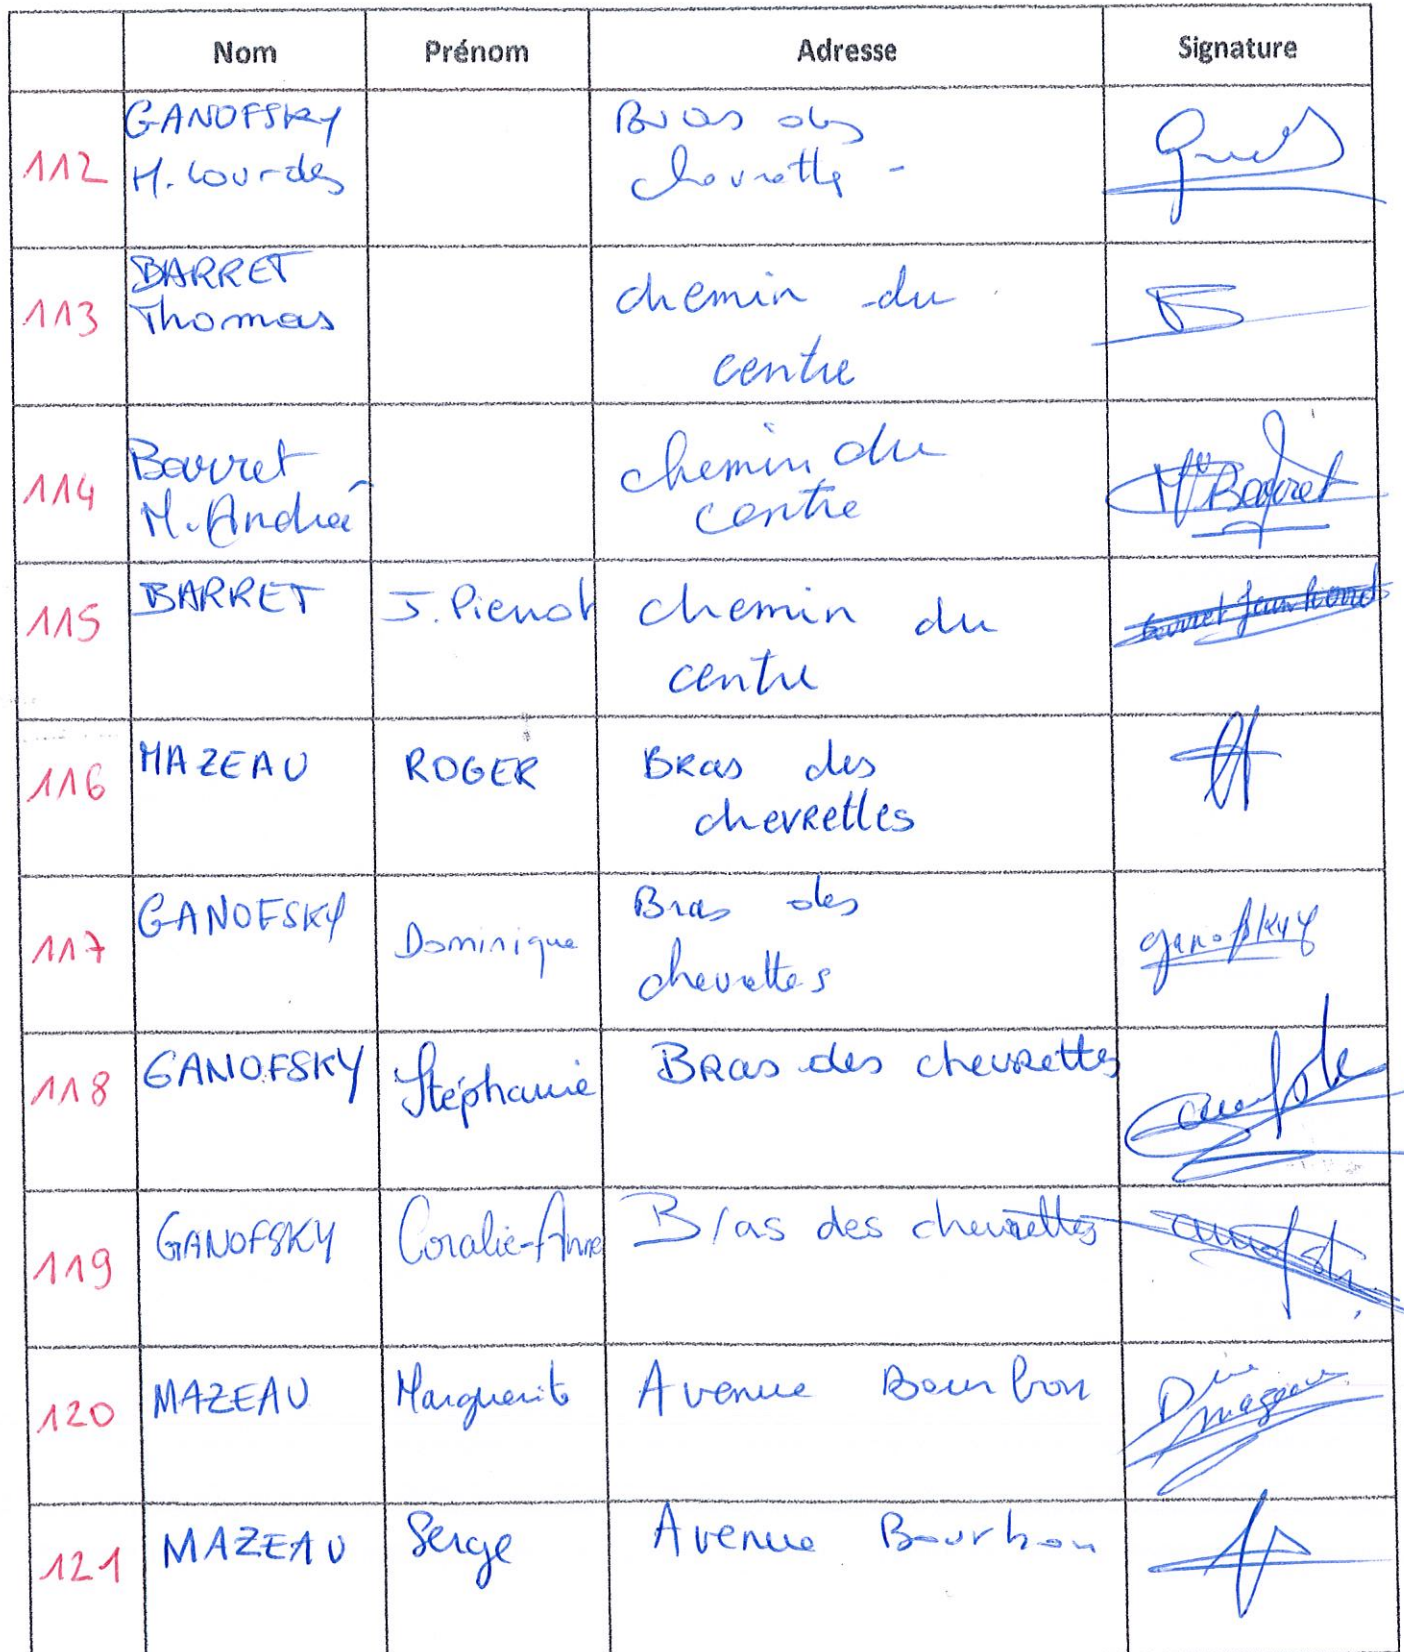 Nom Prénom Adresse Signature
112 GANOFSKY Bras des
M. Lourdes chevrettes -
113 BARRET chemin du
Thomas centre
114 Barret chemin du
M. Andrée centre Barret
115 BARRET J. Pierrot chemin du
centre
116 MAZEAU ROGER BRas des
chevRettes
117 GANOFSKY Dominique Bras des ganofsky
chevrettes
118 GANOFSKY Stéphanie BRas des chevrettes
119 GANOFSKY Coralie-Anne Bras des chevrettes
120 MAZEAU Marguerite Avenue Bourbon
121 MAZEAU Serge Avenue Bourbon